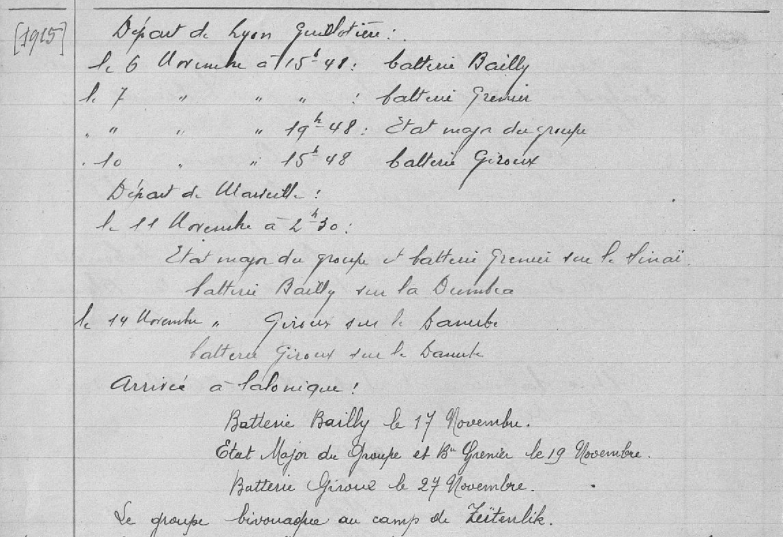 [1915] Départ de Lyon Guillotière :
le 6 Novembre à 15h 48 : batterie Bailly
le 7 " " " : batterie Grenier
" " " " 19h 48 : Etat major du groupe
" 10 " " 15h 48 batterie Giroux
Départ de Marseille :
le 11 Novembre à 2h 30 :
Etat major du groupe et batterie Grenier sur le Sinaï.
batterie Bailly sur la Dumbea
le 14 Novembre " Giroux sur le Danube
batterie Giroux sur le Danube
Arrivée à Salonique :
Batterie Bailly le 17 Novembre.
Etat Major du Groupe et Bie Grenier le 19 Novembre.
Batterie Giroux le 27 Novembre.
Le groupe bivouaque au camp de Zeïtenlik.